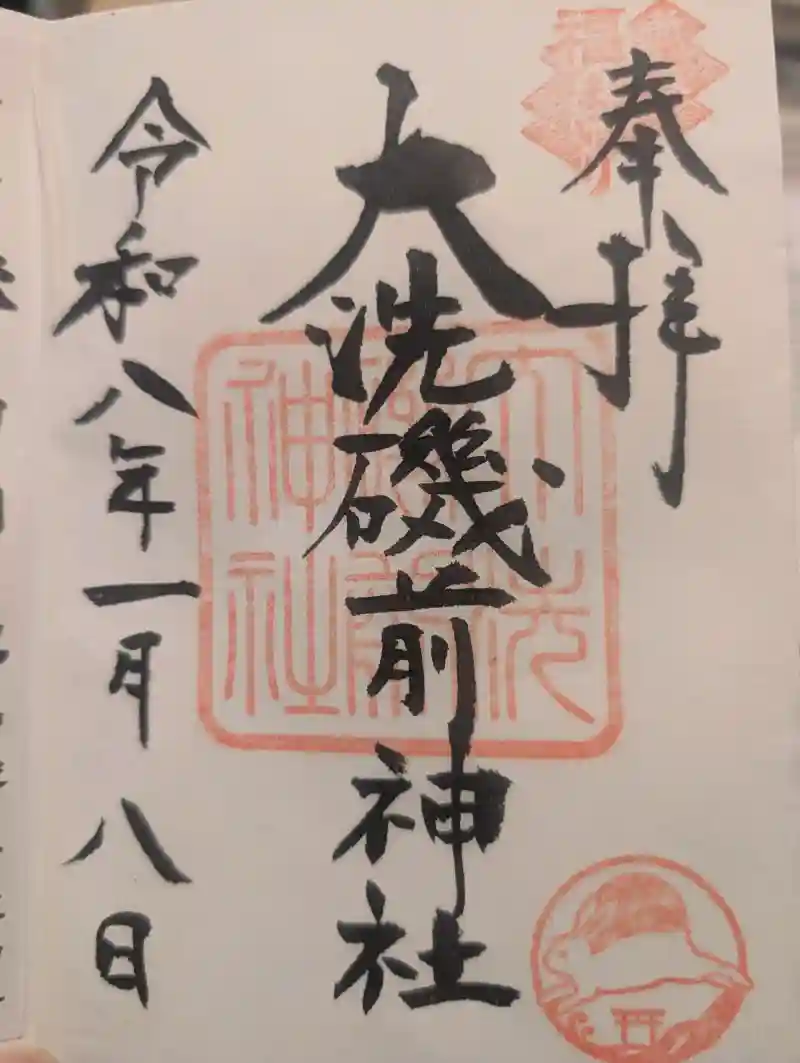 奉拝
大洗磯前神社
令和八年一月八日
大洗
磯前
神社